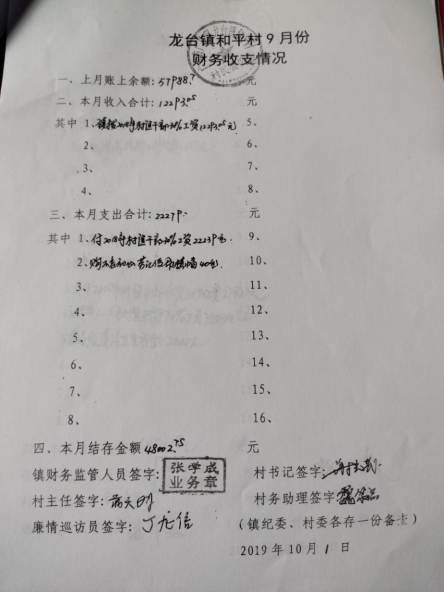 龙台镇和平村9月份
财务收支情况
一、上月账上余额:57988.7 元
二、本月收入合计:12293.05 元
其中 1、镇拨2018年村组干部20%工资12293.05元 5、
2、 6、
3、 7、
4、 8、
三、本月支出合计:22279. 元
其中 1、付2018年村组干部20%工资22239元 9、
2、购 40元 10、
3、 11、
4、 12、
5、 13、
6、 14、
7、 15、
8、 16、
四、本月结存金额48002.75 元
镇财务监管人员签字: 张学成 业务章 村书记签字:
村主任签字: 村务助理签字
廉情巡访员签字:丁龙信 (镇纪委、村委各存一份备士)
2019年10月1日